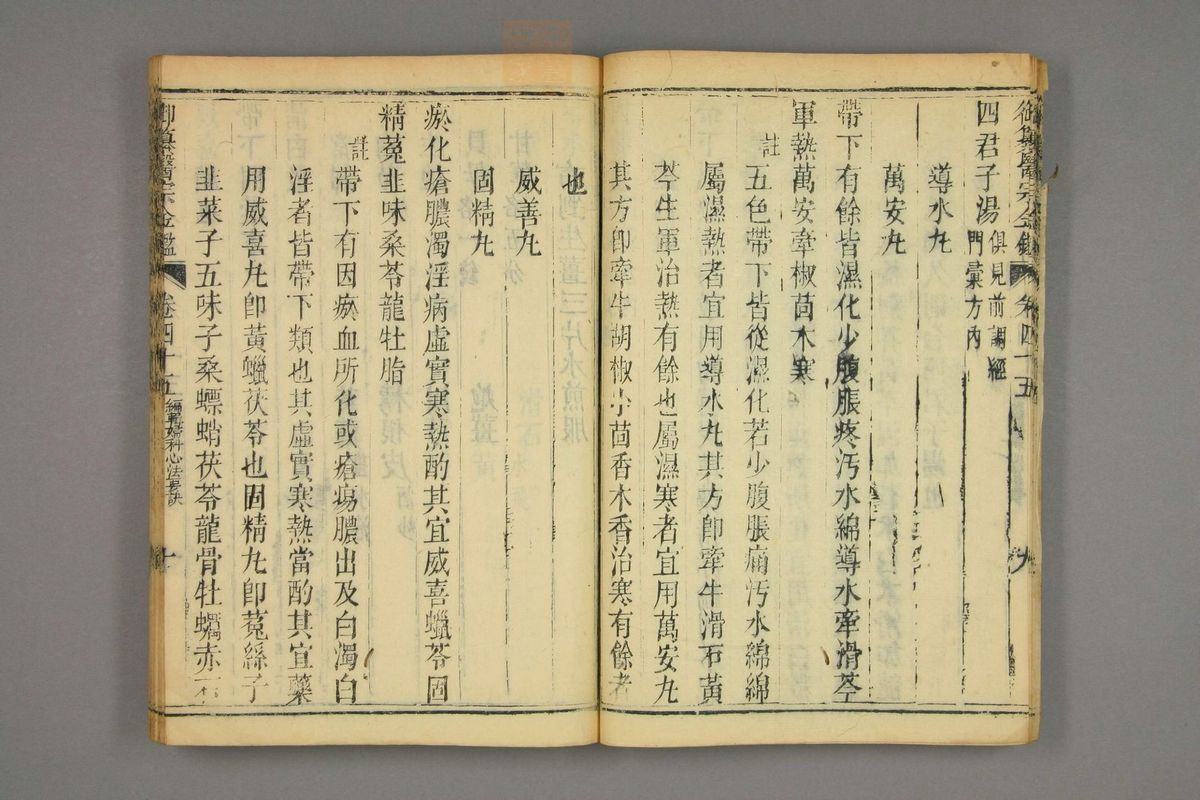 御纂醫宗金鑑
卷四十五
九
四君子湯俱見前調經門彙方內
導水丸
萬安丸
帶下有餘皆濕化少腹脹疼汚水綿導水牽滑芩
軍熱萬安牽椒茴木寒
註
五色帶下皆從濕化若少腹脹痛汚水綿綿
屬濕熱者宜用導水丸其方卽牽牛滑石黃
芩生軍治熱有餘也屬濕寒者宜用萬安丸
其方卽牽牛胡椒小茴香木香治寒有餘者
也
威喜丸
固精丸
瘀化瘡膿濁淫病虛實寒熱酌其宜威喜蠟苓固
精菟韭味桑苓龍牡脂
註
帶下有因瘀血所化或瘡瘍膿出及白濁白
淫者皆帶下類也其虛實寒熱當酌其宜藥
用威喜丸卽黃蠟茯苓也固精丸卽菟絲子
韭菜子五味子桑螵蛸茯苓龍骨牡蠣赤石
御纂醫宗金鑑
卷四十五
編輯婦科心法要訣
十